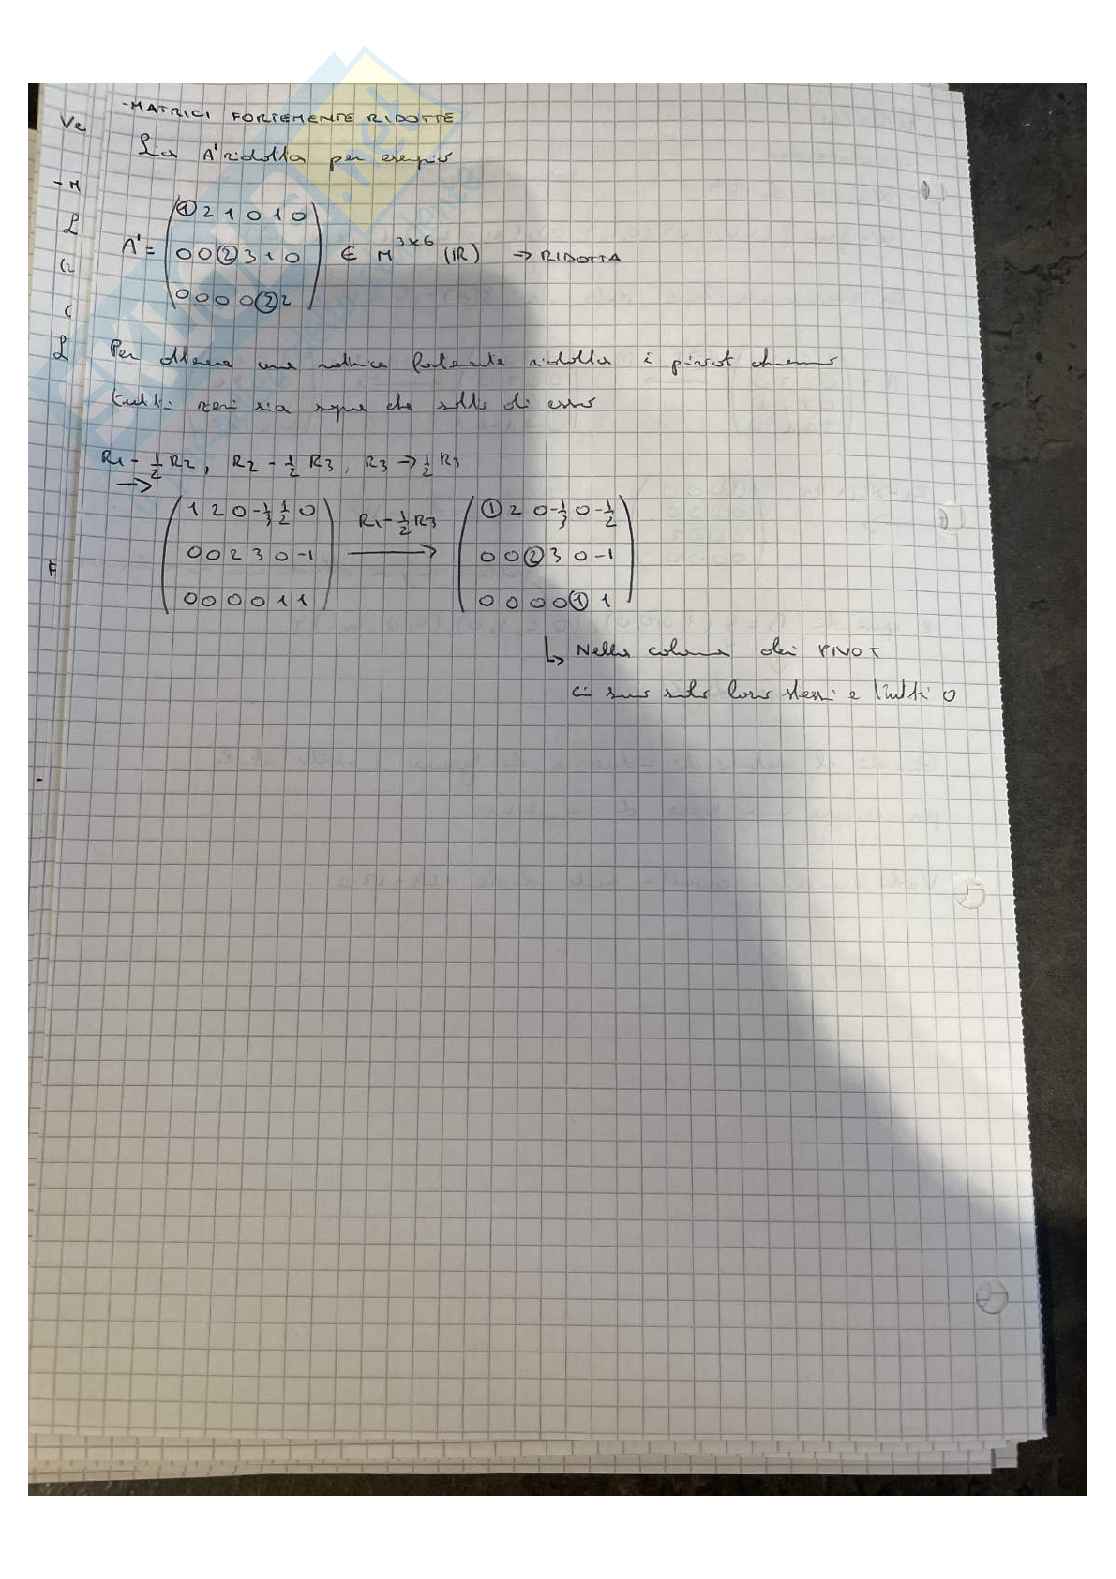 -MATRICI FORTEMENTE RIDOTTE
La A' ridotta per esempio
A' = (1 2 1 0 1 0
0 0 2 3 1 0 ∈ M^3x6 (IR) → RIDOTTA
0 0 0 0 2 2)
Per ottenere una matrice fortemente ridotta i pivot devono
tutti zeri sia sopra che sotto di essi
R1 - 1/2 R2, R2 - 1/2 R3, R3 → 1/2 R3
→
1 2 0 -1/3 1/2 0 R1 - 1/2 R3 1 2 0 -1/3 0 -1/2
0 0 2 3 0 -1 → 0 0 2 3 0 -1
0 0 0 0 1 1 0 0 0 0 1 1
↳ Nella colonna dei PIVOT
ci sono solo loro stessi e tutti 0